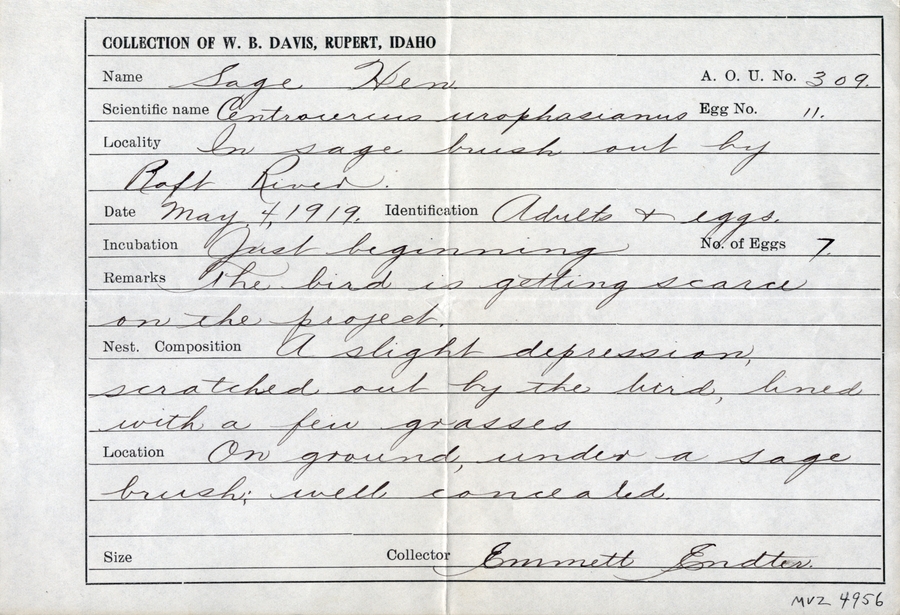 COLLECTION OF W. B. DAVIS, RUPERT, IDAHO
Name Sage Hen A. O. U. No. 309.
Scientific name Centrocercus urophasianus Egg No. 11.
Locality In sage brush out by
Raft River.
Date May 4, 1919. Identification Adults & eggs.
Incubation Just beginning No. of Eggs 7.
Remarks The bird is getting scarce
on the project.
Nest. Composition A slight depression,
scratched out by the bird, lined
with a few grasses
Location On ground, under a sage
brush; well concealed.
Size Collector Emmett Endter.
MVZ 4956